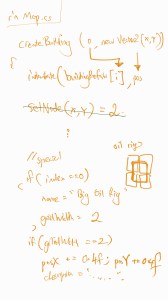 in Map.cs
createBuilding (0, new Vector2(x,y))
{
instantiate (buildingPrefab[i], pos
setNode(x,y) = 2
oil rig
//special
if (index == 0)
name = "Big Oil Rig"
gridWidth = 2
if (gridWidth == 2)
posX += 0.4f; posY +=